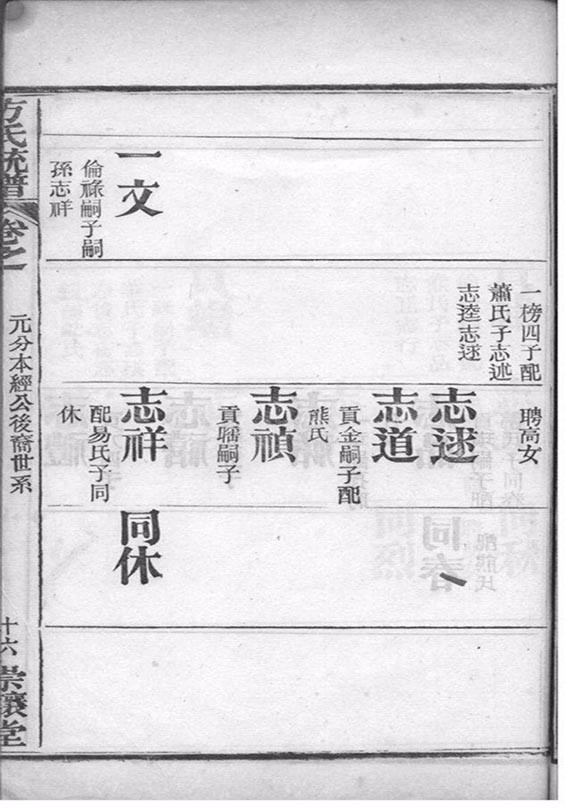 一文
倫祿嗣子嗣
孫志祥
一榜四子配
蕭氏子志述
志逵志逑
聘高女
志逑
志道
貢金嗣子配
熊氏
志禎
貢瑤嗣子
志祥
配易氏子同
休
同休
方氏統譜
卷之
元分本經公後裔世系
十六
崇讓堂